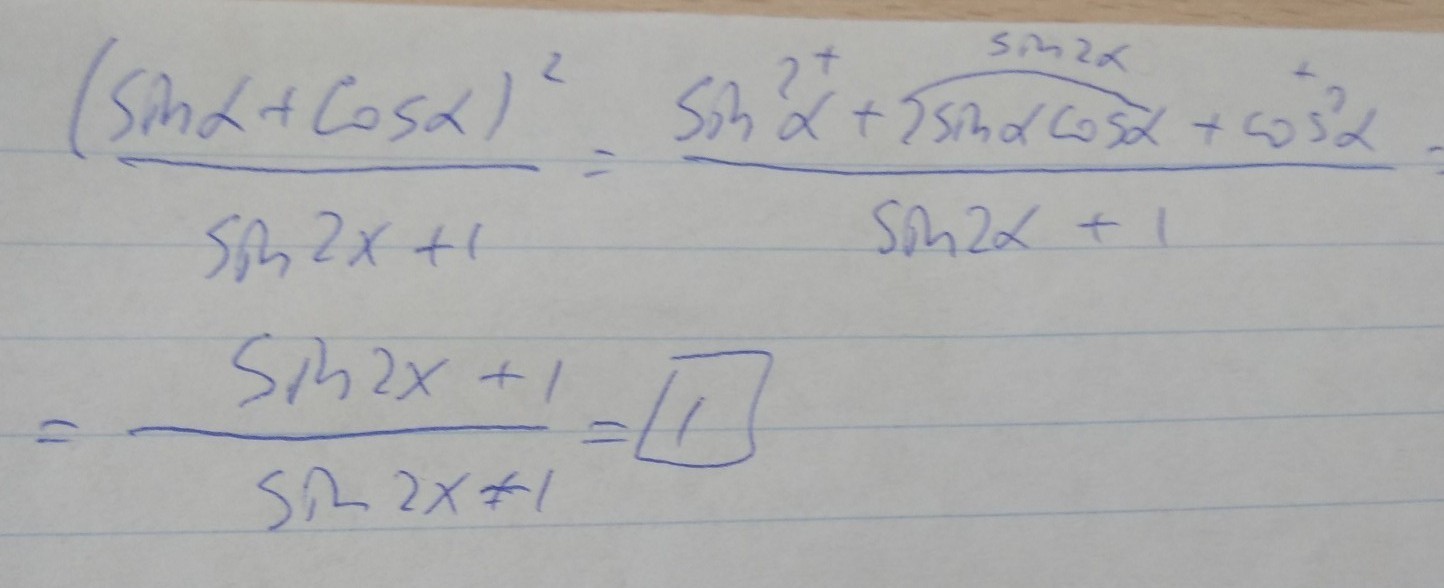 sin2α
(sinα+cosα)² / sin2x+1 = sin²α + 2sinαcosα + cos²α / sin2α + 1 =
= sin2x + 1 / sin2x+1 = 1